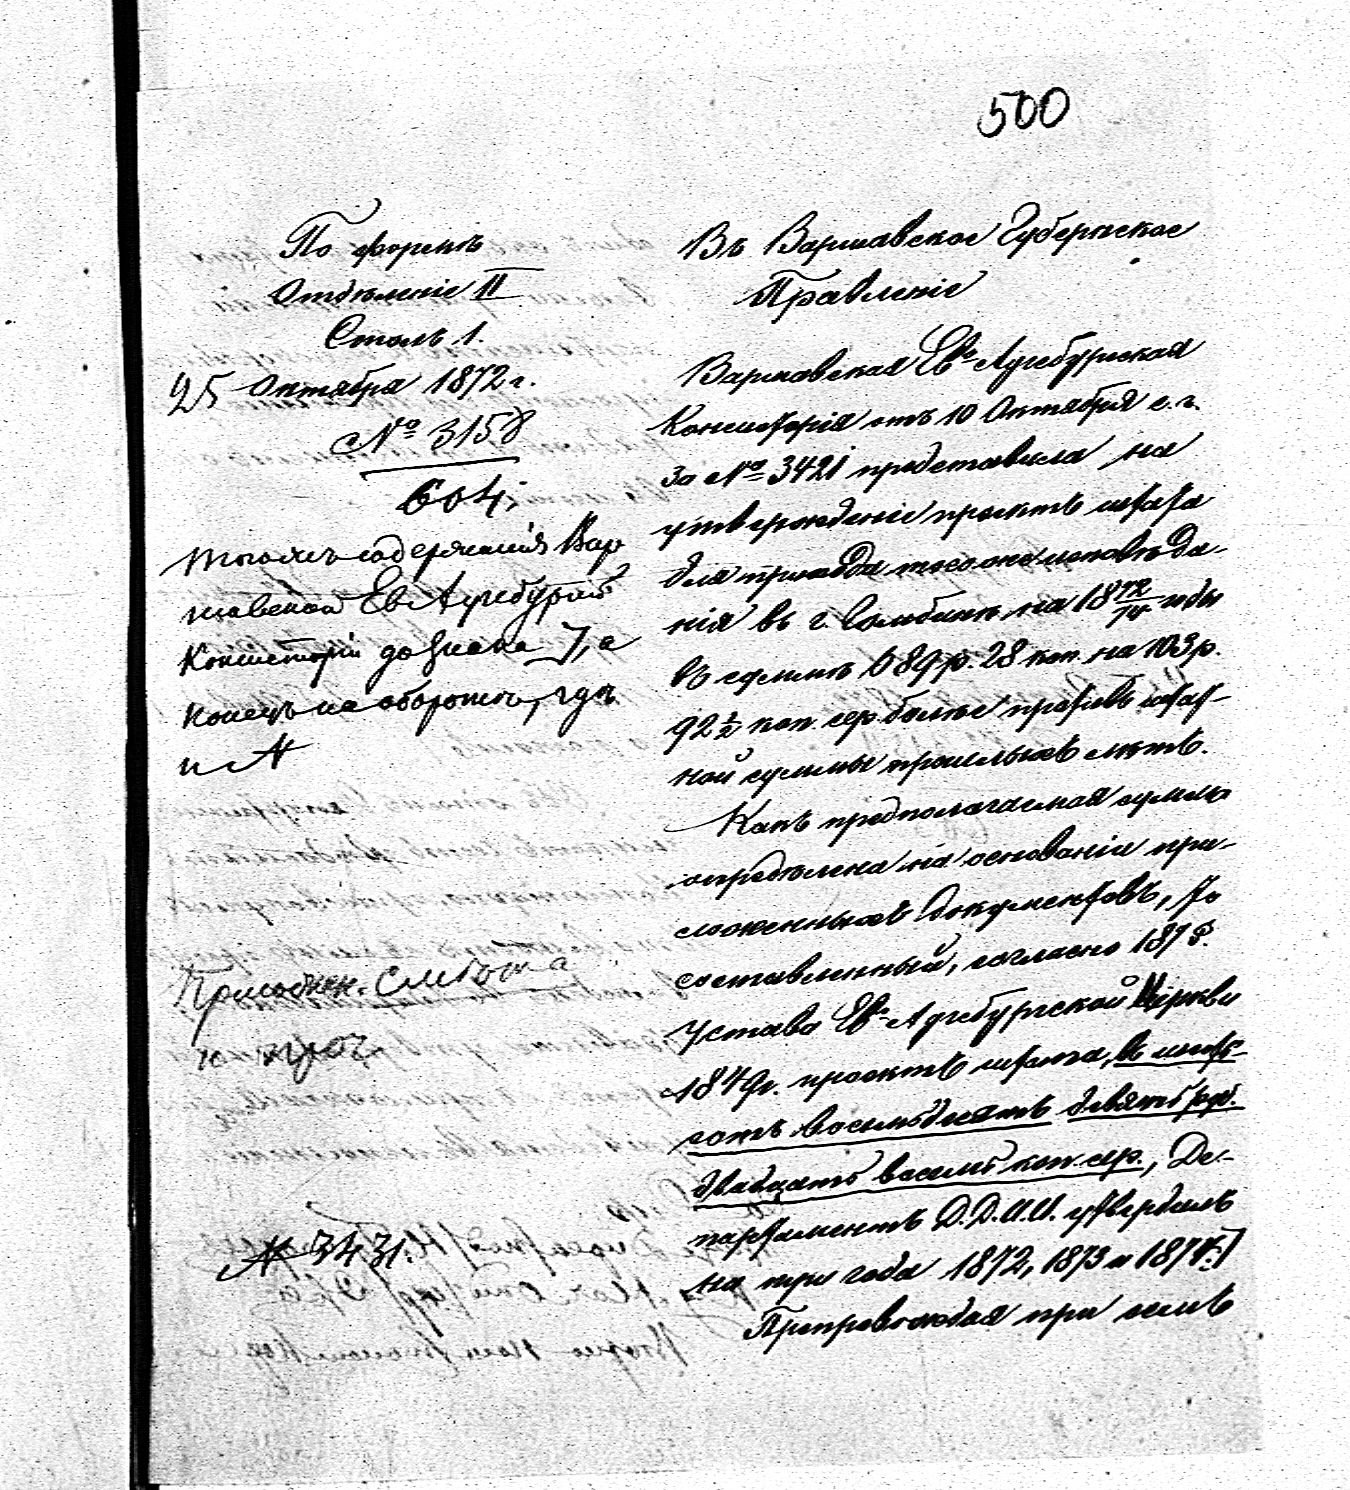 500
По формѣ
Отдѣленіе II
Столъ 1.
25 Октября 1872 г.
№ 3158
604;
тогожъ содержанія Вар
шавской Ев Аугсбургской
Консисторіи до знака ], а
конецъ на оборотѣ, гдѣ
и А
Приложен. смѣта
и проч.
№ 3431.
Въ Варшавское Губернское
Правленіе
Варшавская Евᵒ Аугсбургская
Консисторія отъ 10 Октября с. г.
за № 3421 представила на
утвержденіе проектъ штата
для прихода тогоже исповѣда-
нія въ г. на 1872/74 годы
въ суммѣ 689 р. 28 коп. на 103 р.
92½ коп. сер. болѣе противъ штат-
ной суммы прошлыхъ лѣтъ.
Какъ предполагаемая сумма
опредѣлена на основаніи при-
ложенныхъ документовъ, то
составленный, согласно 187 §.
Устава Евᵒ Аугсбургской Церкви
1849 г. проектъ штата, въ шесть-
сотъ восемьдесятъ девять руб.
двадцать восемь коп. сер., Де-
партаментъ Д. Д. И. И. утвердилъ
на три года 1872, 1873 и 1874 г. ]
Препровождая при семъ